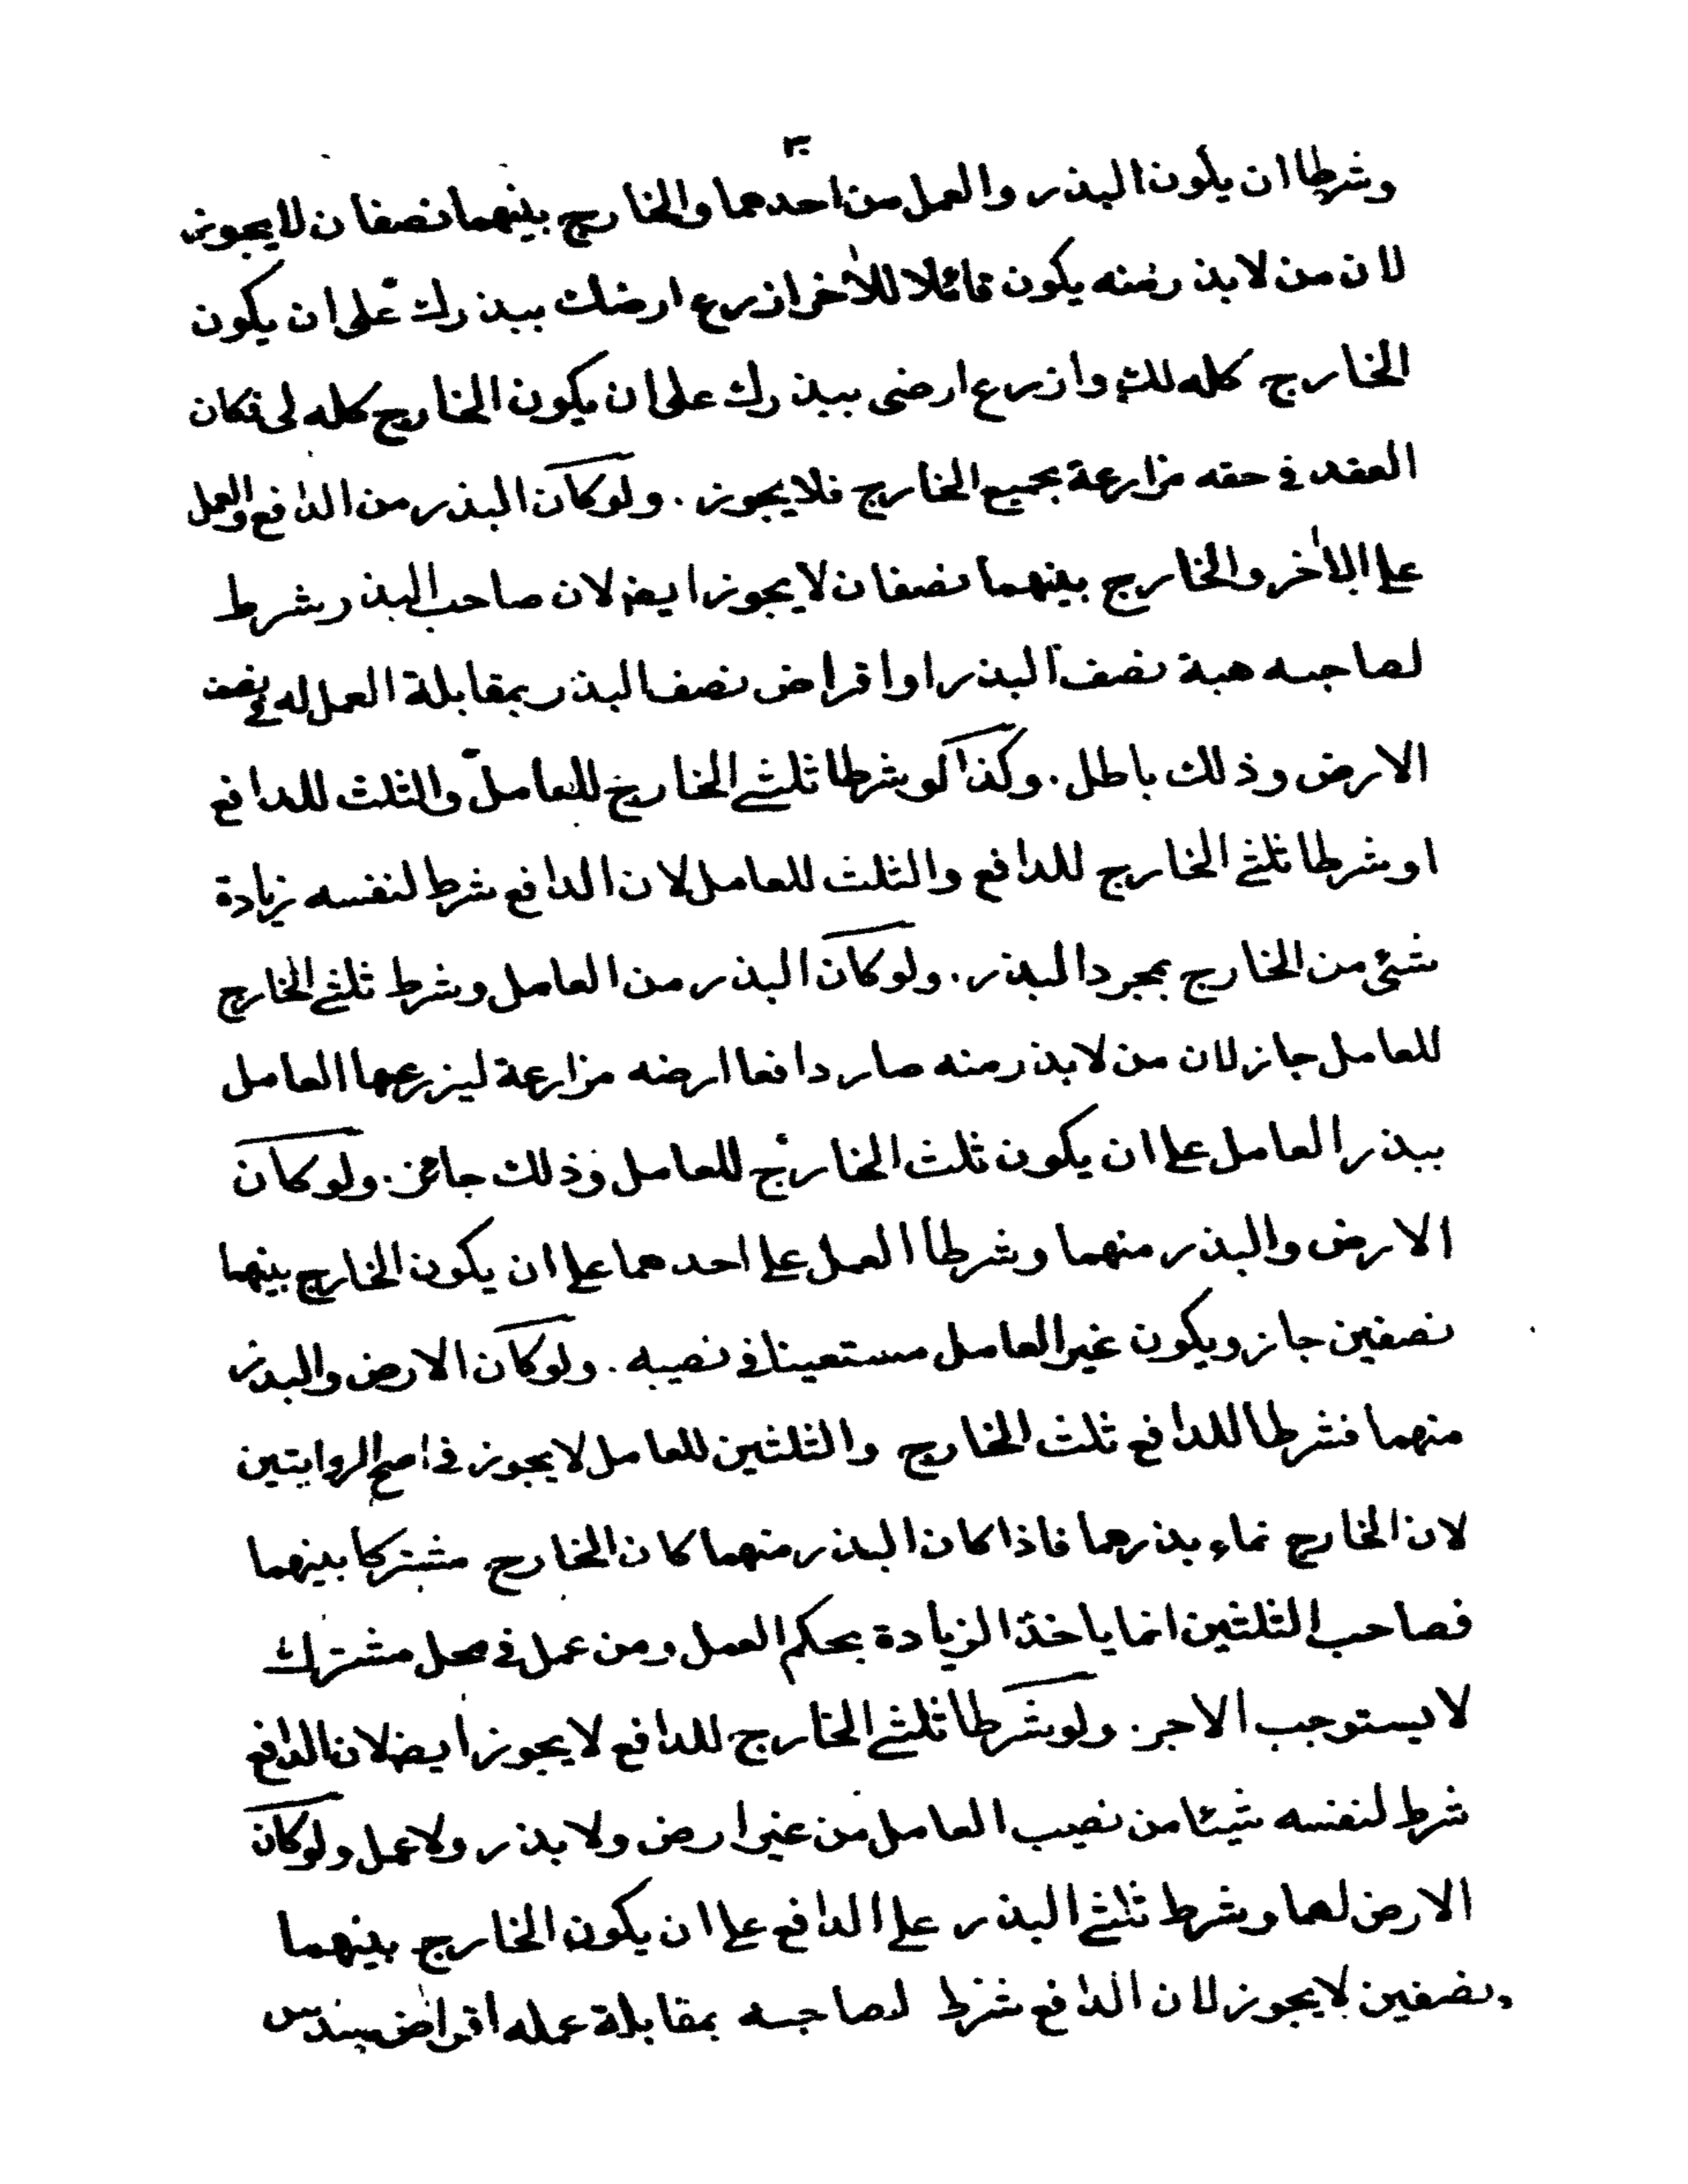 وشرطا ان يكون البذر والعمل من احدهما والخارج بينهما نصفان لا يجوز
لان من لا بذر منه يكون قائلا للاٰخر ازرع ارضك ببذرك على ان يكون
الخارج كله لك وازرع ارضى ببذرك على ان يكون الخارج كله لى فكان
العقد فى حقه مزارعة بجميع الخارج فلا يجوز . ولو كان البذر من الدافع والعمل
على الاٰخر والخارج بينهما نصفان لا يجوز ايضا لان صاحب البذر شرط
لصاحبه هبة نصف البذر او اقراض نصف البذر بمقابلة العمل له فى نصف
الارض وذلك باطل . وكذا لو شرطا ثلثى الخارج للعامل والثلث للدافع
او شرطا ثلثى الخارج للدافع والثلث للعامل لان الدافع شرط لنفسه زيادة
شئ من الخارج بمجرد البذر . ولو كان البذر من العامل وشرط ثلثى الخارج
للعامل جاز لان من لا بذر منه صار دافعا ارضه مزارعة ليزرعها العامل
ببذر العامل على ان يكون ثلث الخارج للعامل وذلك جائز . ولو كان
الارض والبذر منهما وشرطا العمل على احدهما على ان يكون الخارج بينهما
نصفين جاز ويكون غير العامل مستعينا فى نصيبه . ولو كان الارض والبذر
منهما فشرطا للدافع ثلث الخارج والثلثين للعامل لا يجوز فى اصح الروايتين
لان الخارج نماء بذرهما فاذا كان البذر منهما كان الخارج مشتركا بينهما
فصاحب الثلثين انما ياخذ الزيادة بحكم العمل ومن عمل فى محل مشترك
لا يستوجب الاجر . ولو شرطا ثلثى الخارج للدافع لا يجوز ايضا لان الدافع
شرط لنفسه شيئا من نصيب العامل من غير ارض ولا بذر ولا عمل ولو كان
الارض لهما وشرط ثلثى البذر على الدافع على ان يكون الخارج بينهما
نصفين لا يجوز لان الدافع شرط لصاحبه بمقابلة عمله اقراض سدس